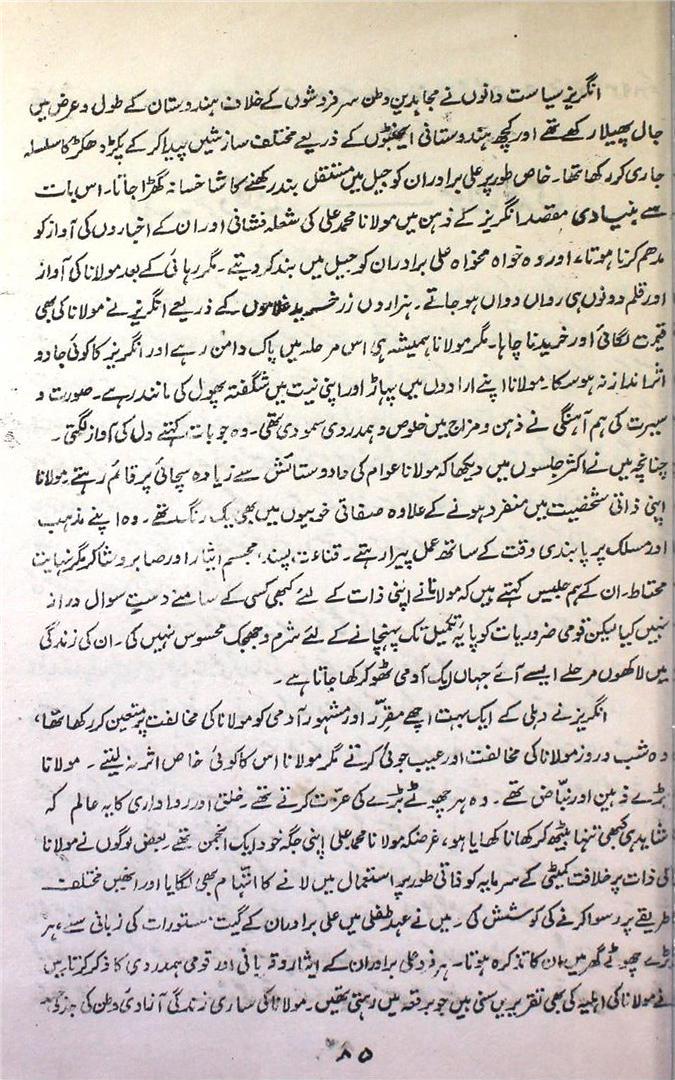 انگریز سیاست دانوں نے مجاہدینِ وطن سرفروشوں کے خلاف ہندوستان کے طول و عرض میں
جال پھیلا رکھے تھے اور کچھ ہندوستانی ایجنٹوں کے ذریعے مختلف سازشیں پیدا کر کے پکڑ دھکڑ کا سلسلہ
جاری کر رکھا تھا۔ خاص طور پر علی برادران کو جیل میں مستقل بند رکھنے کا شاخسانہ گھڑا جاتا۔ اس بات
سے بنیادی مقصد انگریز کے ذہن میں مولانا محمد علی کی شعلہ فشانی اور ان کے اخباروں کی آواز کو
مدھم کرنا ہوتا، اور وہ خواہ مخواہ علی برادران کو جیل میں بند کر دیتے۔ مگر رہائی کے بعد مولانا کی آواز
اور قلم دونوں ہی رواں دواں ہو جاتے۔ ہزاروں زر خرید غلاموں کے ذریعے انگریز نے مولانا کی بھی
قیمت لگائی اور خریدنا چاہا۔ مگر مولانا ہمیشہ ہی اس مرحلہ میں پاک دامن رہے اور انگریز کا کوئی جادو
اثر انداز نہ ہو سکا۔ مولانا اپنے ارادوں میں پہاڑ اور اپنی نیت میں شگفتہ پھول کی مانند رہے۔ صورت و
سیرت کی ہم آہنگی نے ذہن و مزاج میں خلوص و ہمدردی سمو دی تھی۔ وہ جو بات کہتے دل کی آواز لگتی۔
چنانچہ میں نے اکثر جلسوں میں دیکھا کہ مولانا عوام کی داد و ستائش سے زیادہ سچائی پر قائم رہتے۔ مولانا
اپنی ذاتی شخصیت میں منفرد ہونے کے علاوہ صفاتی خوبیوں میں بھی یک رنگ تھے۔ وہ اپنے مذہب
اور مسلک پر پابندی وقت کے ساتھ عمل پیرا رہتے۔ قناعت پسند، مجسم ایثار اور صابر و شاکر مگر نہایت
محتاط۔ ان کے ہم جلیس کہتے ہیں کہ مولانا نے اپنی ذات کے لئے کبھی کسی کے سامنے دستِ سوال دراز
نہیں کیا لیکن قومی ضروریات کو پایۂ تکمیل تک پہنچانے کے لئے شرم و جھجک محسوس نہیں کی۔ ان کی زندگی
میں لاکھوں مرحلے ایسے آئے جہاں ایک آدمی ٹھوکر کھا جاتا ہے۔
انگریز نے دہلی کے ایک بہت اچھے مقرّر اور مشہور آدمی کو مولانا کی مخالفت پر متعین کر رکھا تھا،
وہ شب و روز مولانا کی مخالفت اور عیب جوئی کرتے مگر مولانا اس کا کوئی خاص اثر نہ لیتے۔ مولانا
بڑے ذہین اور نبّاض تھے۔ وہ ہر چھوٹے بڑے کی عزت کرتے تھے۔ خلق اور رواداری کا یہ عالم کہ
شاید ہی کبھی تنہا بیٹھ کر کھانا کھایا ہو، غرضکہ مولانا محمد علی اپنی جگہ خود ایک انجمن تھے۔ بعض لوگوں نے مولانا
کی ذات پر خلافت کمیٹی کے سرمایہ کو ذاتی طور پر استعمال میں لانے کا اتہام بھی لگایا اور انھیں مختلف
طریقے پر رسوا کرنے کی کوشش کی۔ میں نے عہدِ طفلی میں علی برادران کے گیت مستورات کی زبانی سنے، ہر
بڑے چھوٹے گھر میں ان کا تذکرہ ہوتا۔ ہر فرد علی برادران کے ایثار و قربانی اور قومی ہمدردی کا ذکر کرتا۔ میں
نے مولانا کی اہلیہ کی بھی تقریریں سنی ہیں جو برقعہ میں رہتی تھیں۔ مولانا کی ساری زندگی آزادیٔ وطن کی
۸۵